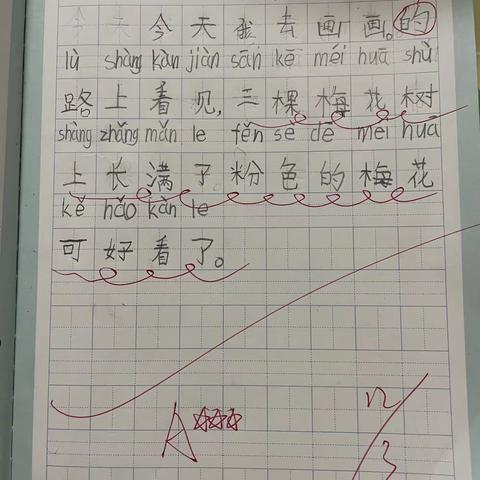 今天今天我去画画。的
lù shàng kàn jiàn sān kē méi huā shù
路上看见,三棵梅花树
shàng zhǎng mǎn le fěn sè de méi hua
上长满了粉色的梅花
kě hǎo kàn le
可好看了。
A☆☆☆
12/3